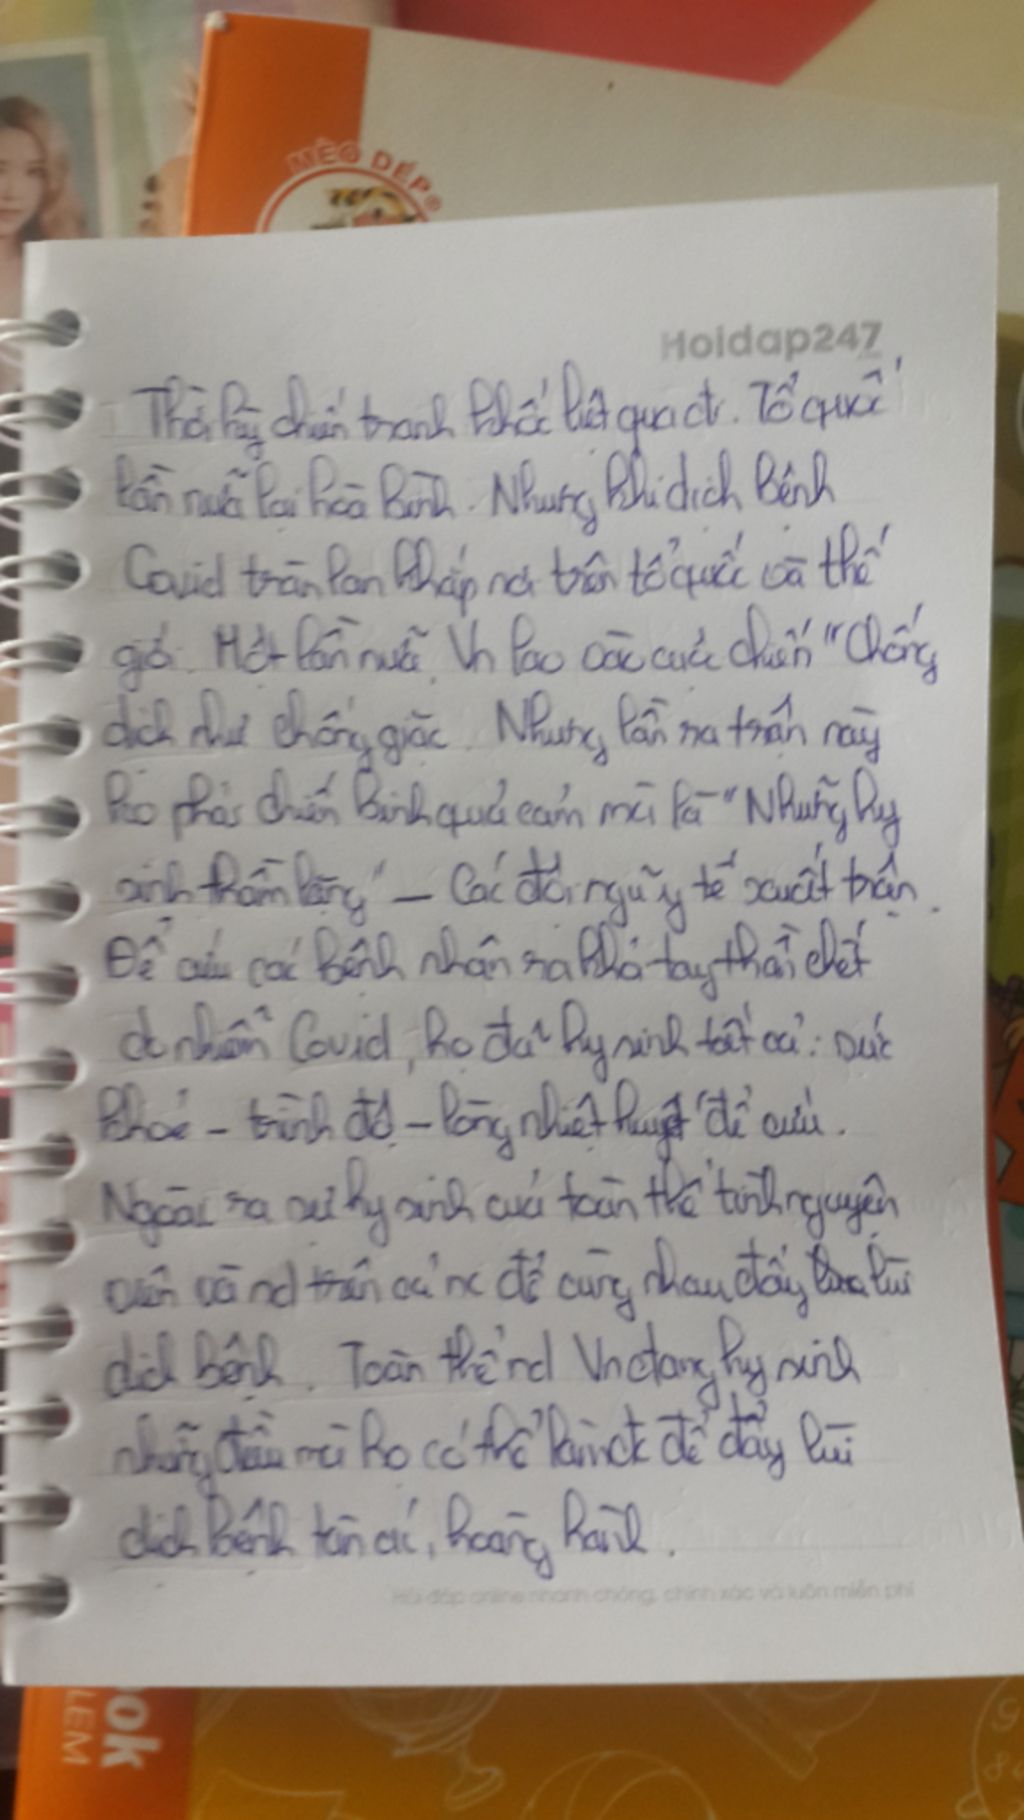 MÈO DÉP®
Hoidap247
Thời kỳ chiến tranh khốc liệt qua đi. Tổ quốc
lần nữa lại hoà bình. Nhưng khi dịch bệnh
Covid tràn lan khắp nơi trên tổ quốc và thế
giới. Một lần nữa, Vn lao vào cuộc chiến "Chống
dịch như chống giặc. Nhưng lần ra trận này
ko phải chiến binh quả cảm mà là "Những hy
sinh thầm lặng" – Các đội ngũ y tế xuất trận.
Để cứu các bệnh nhân ra khỏi tay thần chết
do nhiễm Covid, họ đã hy sinh tất cả: sức
khoẻ – trình độ – lòng nhiệt huyết để cứu.
Ngoài ra sự hy sinh của toàn thể tình nguyện
viên và nd trên cả nc để cùng nhau đẩy lùi
dịch bệnh. Toàn thể nd Vn đang hy sinh
những điều mà họ có thể làm đc để đẩy lùi
dịch bệnh tàn ác, hoành hành.
Hỏi đáp online nhanh chóng, chính xác và luôn miễn phí
ok
LEM